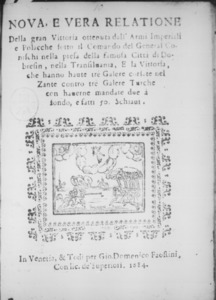 NOVA, E VERA RELATIONE
Della gran Vittoria ottenuta dall' Armi Imperiali
e Polacche sotto il Comando del General
nella presa della famosa Città di
nella Transilvania, E la Vittoria,
che hanno hauute tre Galere nel
Zante contro tre Galere Turche
con hauerne mandate due à
fondo, e fatti 70. Schiaui.
In Venetia, & Todi per Gio. Domenico Faostini,
Con lic. de Superiori. 1684.